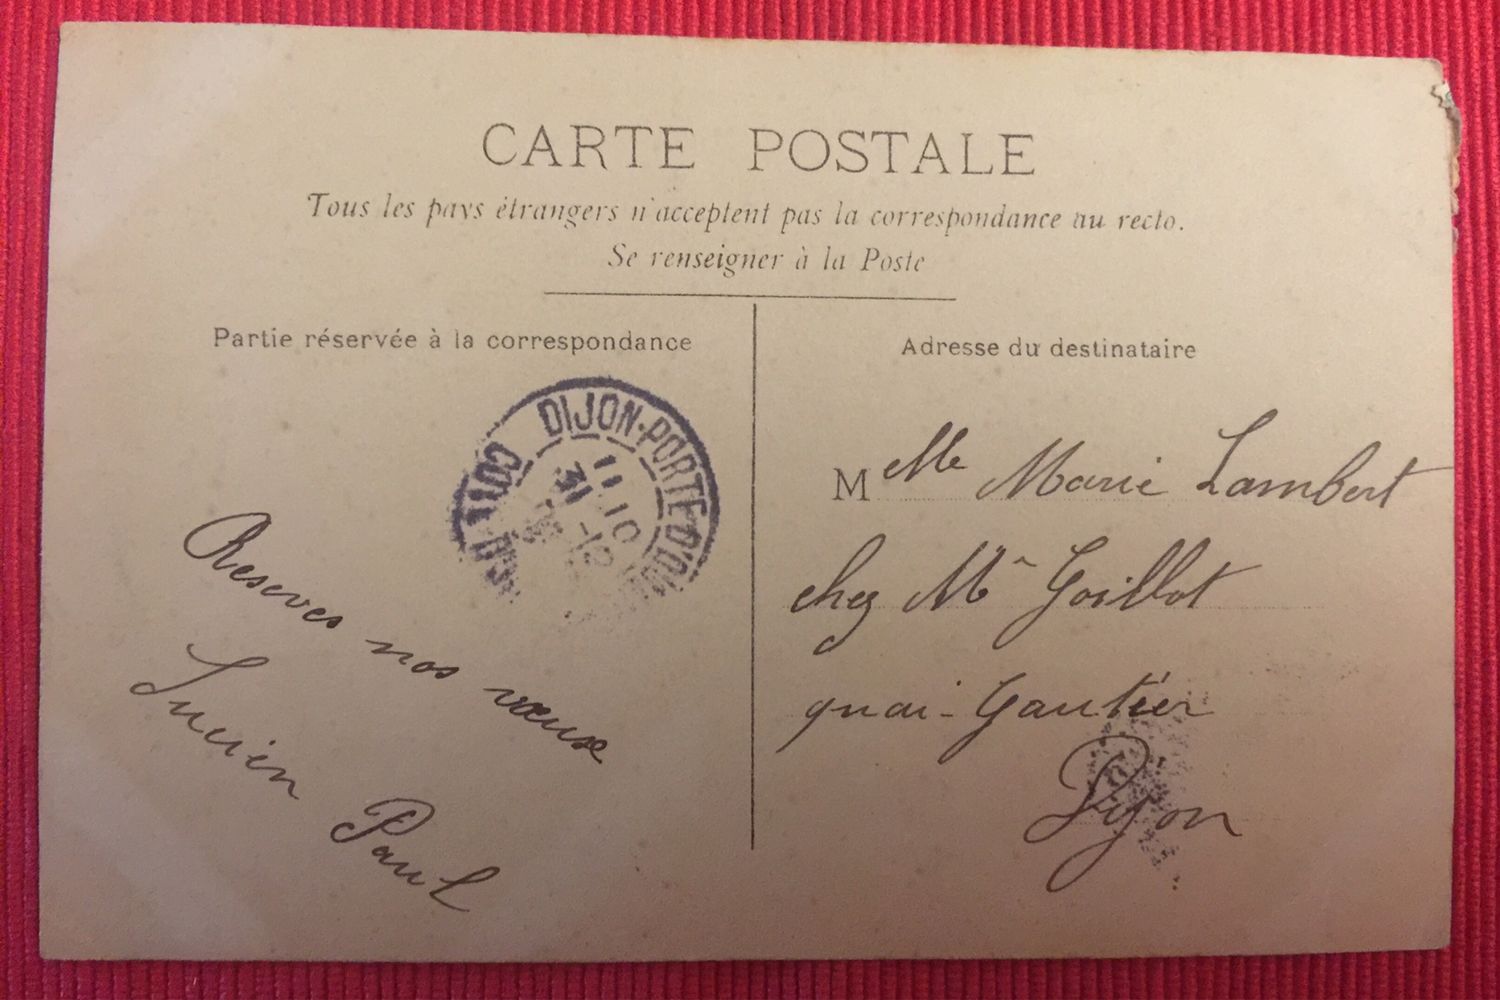 CARTE POSTALE
Tous les pays étrangers n'acceptent pas la correspondance au recto.
Se renseigner à la Poste
Partie réservée à la correspondance
Adresse du destinataire
DIJON-PORTE-D'OU
COTE D'OR
11 10
31 -12
Reseves nos vœux
Lucien Paul
Melle Marie Lambert
chez Mr Goillot
quai-Gautier
Dijon